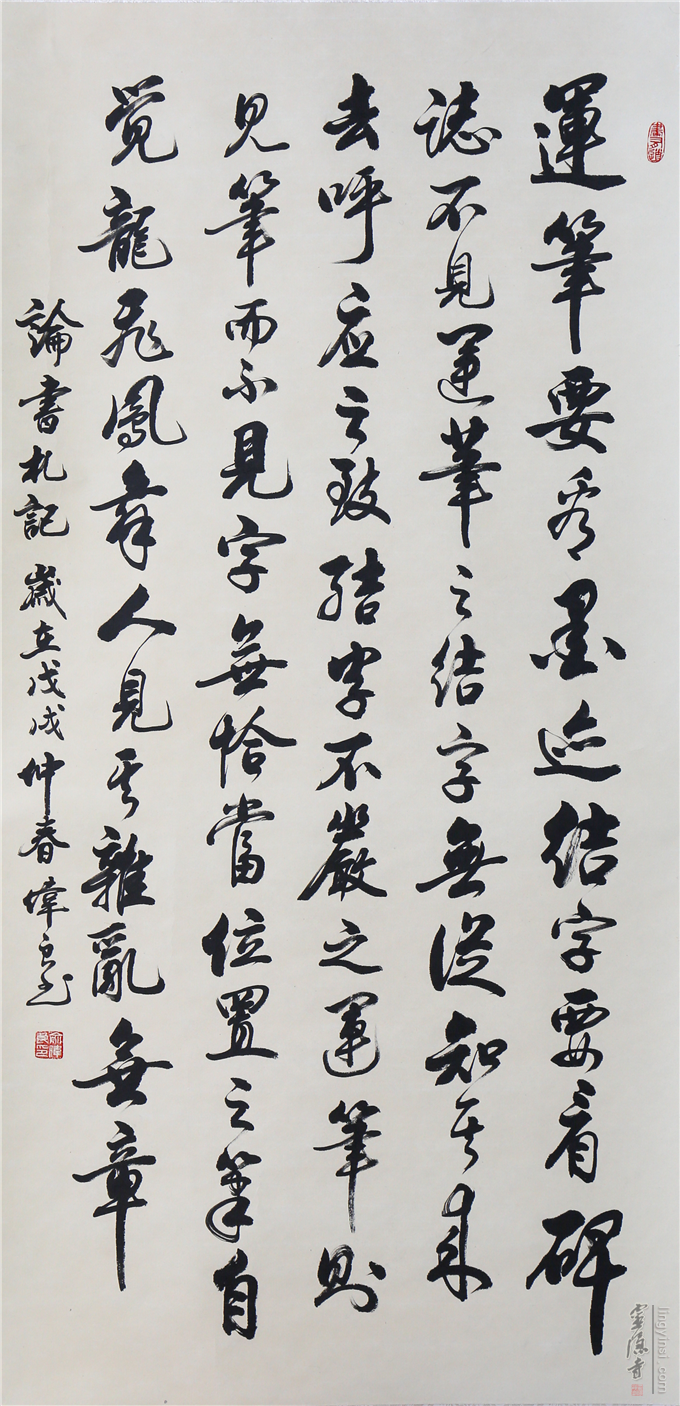 運筆要看墨迹結字要看碑
誌不見運筆之結字無從知其来
去呼应之致結字不嚴之運筆則
見筆而不見字無恰當位置之筆自
觉龍飛鳳舞人見其雜亂無章
論書札記 歲在戊戌仲春偉良书
靈隱寺
lingyinsi.com